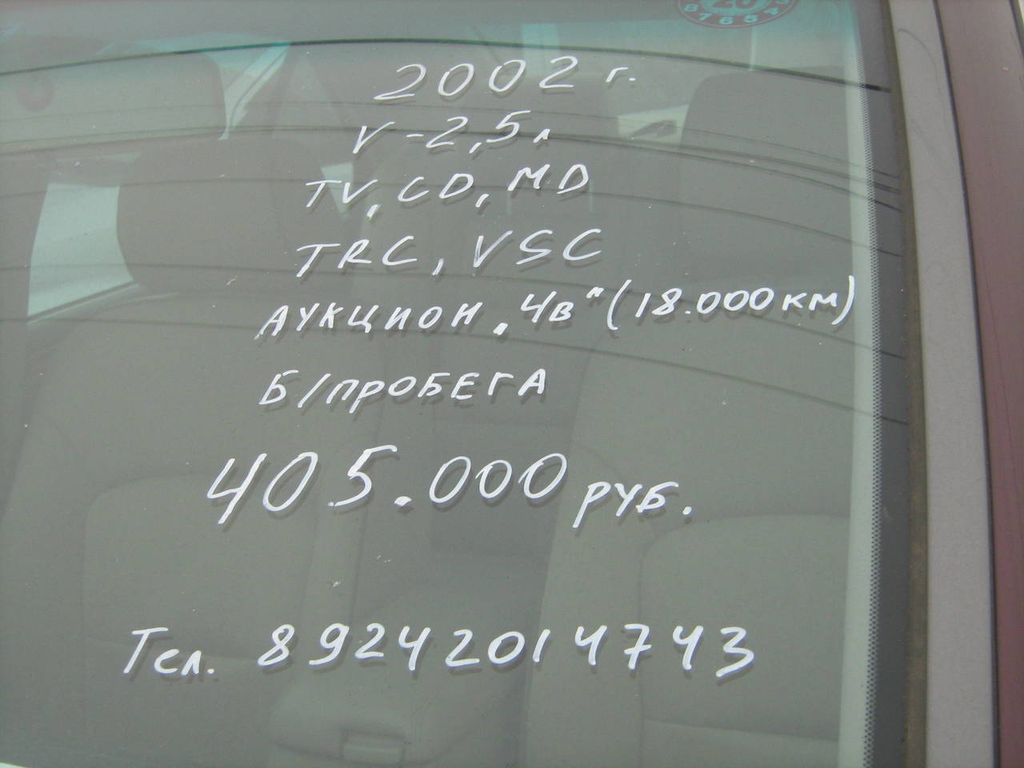 2002 г.
V-2,5л
TV, CD, MD
TRC, VSC
АУКЦИОН „4в" (18.000 км)
Б/ПРОБЕГА
405.000 руб.
Тел. 89242014743